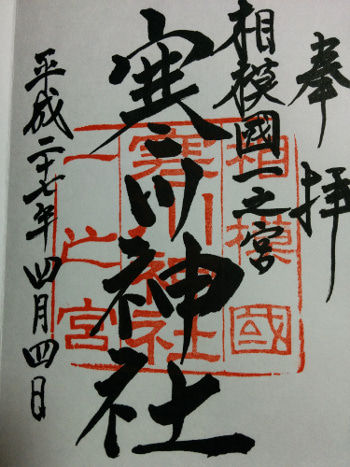 奉拝
相模國一之宮
寒川神社
平成二十七年四月四日
相模國
寒川神社
一之宮